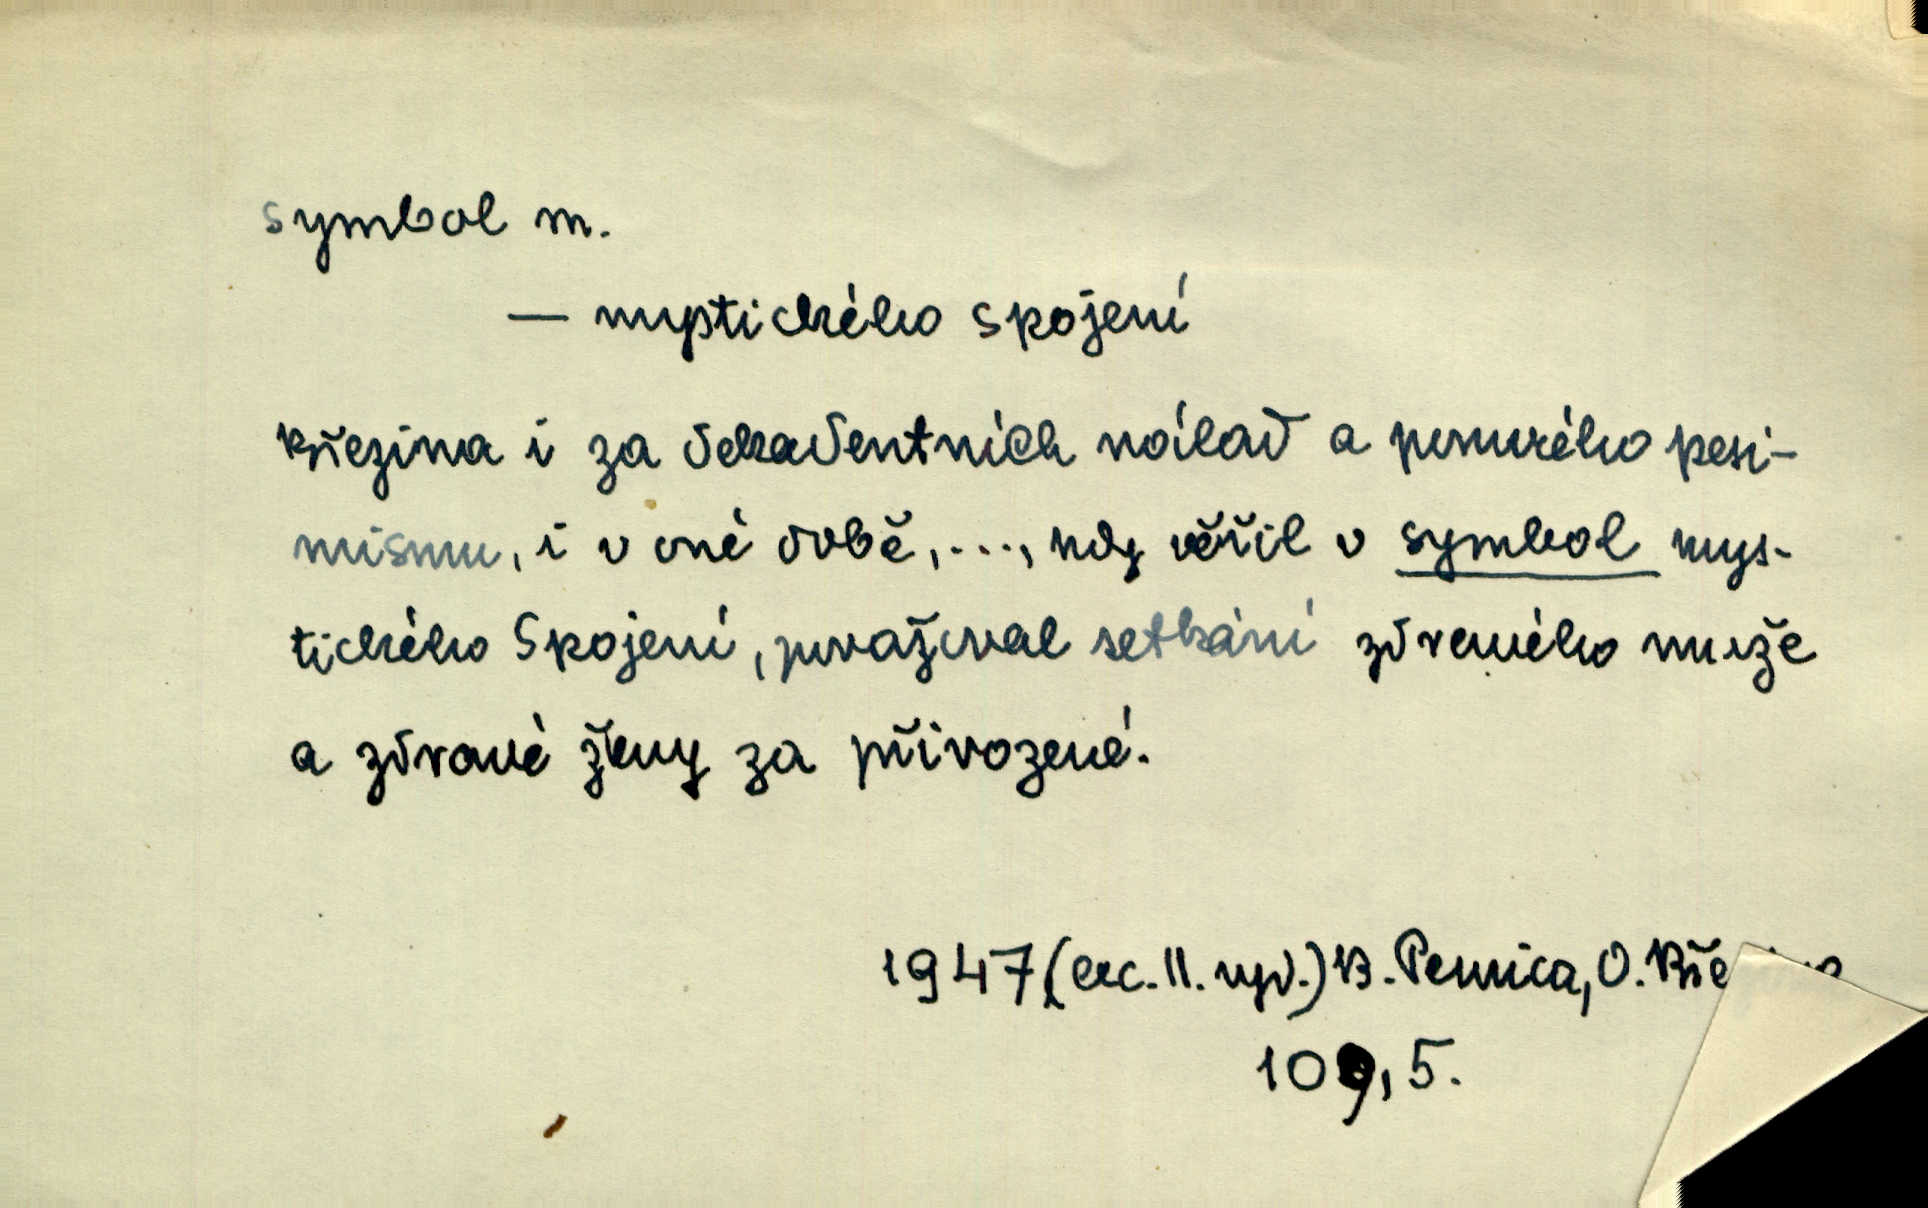 symbol m.
— mystického spojení
Březina i za dekadentních nálad a ponurého pesi-
mismu, i v oné době, ..., kdy věřil v symbol mys-
tického spojení, považoval setkání zdravého muže
a zdravé ženy za přirozené.
1947 (exc. II. vyd.) B. Pernica, O. Bře
109, 5.